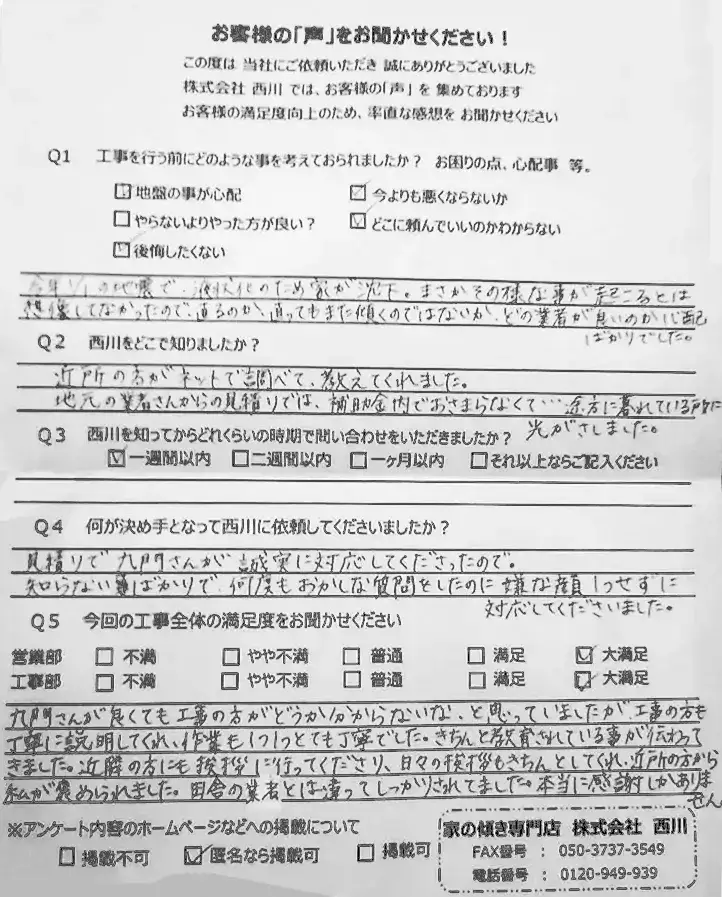 お客様の「声」をお聞かせください！
この度は 当社にご依頼いただき 誠にありがとうございました
株式会社 西川 では、お客様の「声」を 集めております
お客様の満足度向上のため、率直な感想を お聞かせください
Q1 工事を行う前にどのような事を考えておられましたか？ お困りの点、心配事 等。
☑地盤の事が心配 ☑今よりも悪くならないか
☐やらないよりやった方が良い？ ☑どこに頼んでいいのかわからない
☑後悔したくない
今年1/1の地震で、液状化のため家が沈下。まさかその様な事が起こるとは
想像してなかったので、直るのか、直ってもまた傾くのではないか、どの業者が良いのか心配
ばかりでした。
Q2 西川をどこで知りましたか？
近所の方がネットで調べて、教えてくれました。
地元の業者さんからの見積りでは、補助金内でおさまらなくて…途方に暮れている所に
光がさしました。
Q3 西川を知ってからどれくらいの時期で問い合わせをいただきましたか？
☑一週間以内 ☐二週間以内 ☐一ヶ月以内 ☐それ以上ならご記入ください
Q4 何が決め手となって西川に依頼してくださいましたか？
見積りで九門さんが誠実に対応してくださったので。
知らない事ばかりで、何度もおかしな質問をしたのに嫌な顔1つせずに
対応してくださいました。
Q5 今回の工事全体の満足度をお聞かせください
営業部 ☐ 不満 ☐ やや不満 ☐ 普通 ☐ 満足 ☑ 大満足
工事部 ☐ 不満 ☐ やや不満 ☐ 普通 ☐ 満足 ☑ 大満足
九門さんが良くても工事の方がどうか分からないな、と思っていましたが工事の方も
丁寧に説明してくれ、作業も1つ1つとても丁寧でした。きちんと教育されている事が伝わって
きました。近隣の方にも挨拶に行ってくださり、日々の挨拶もきちんとしてくれ、近所の方から
私が褒められました。田舎の業者とは違ってしっかりされてました。本当に感謝しかありま
せん
※アンケート内容のホームページなどへの掲載について
☐ 掲載不可 ☑ 匿名なら掲載可 ☐ 掲載可
家の傾き専門店 株式会社 西川
FAX番号 ： 050-3737-3549
電話番号 ： 0120-949-939